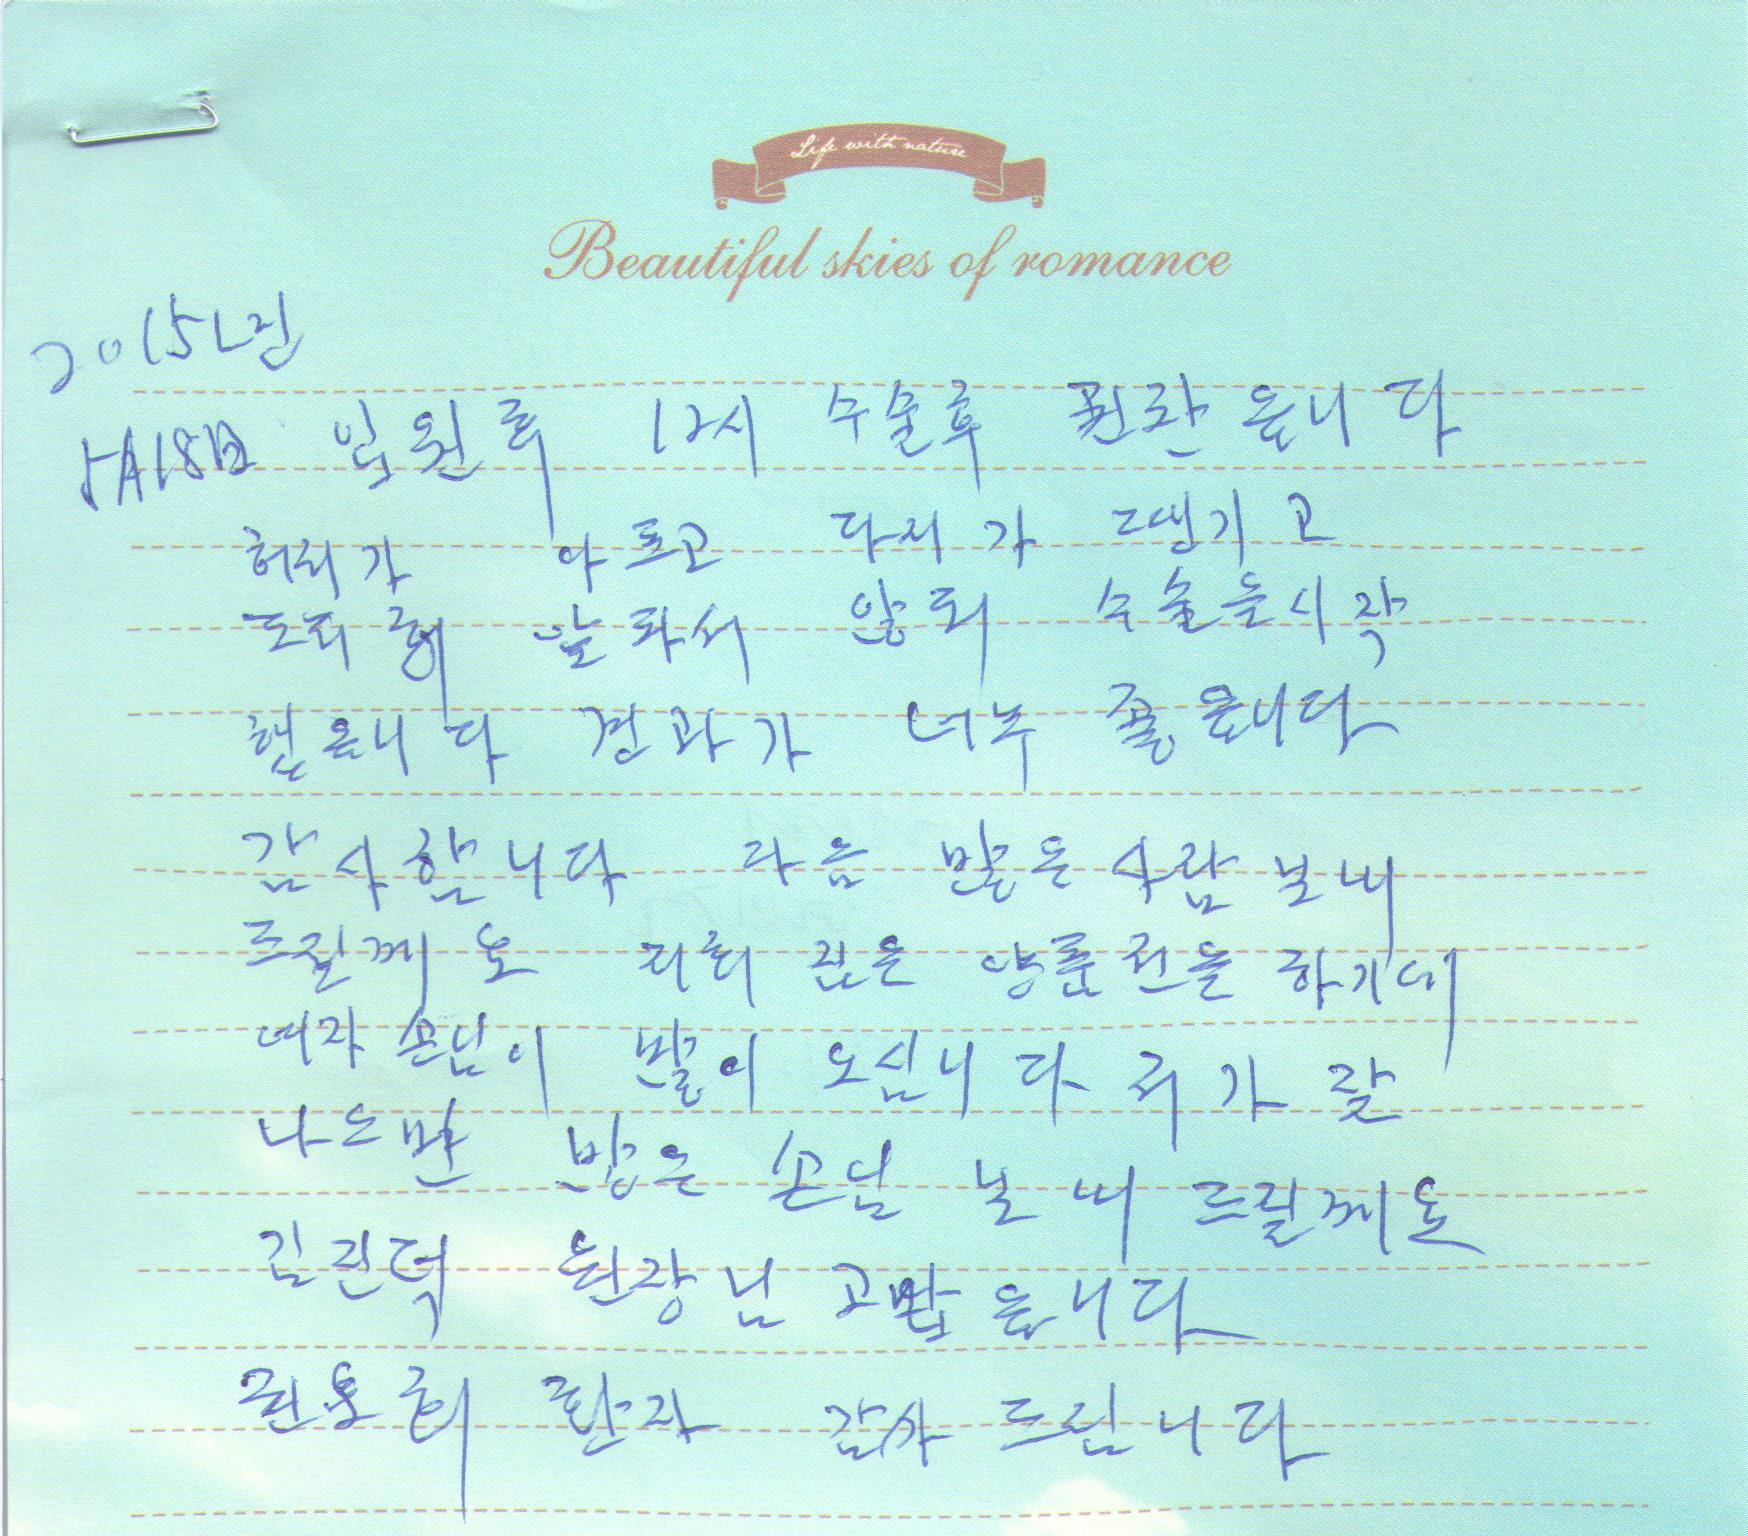 Life with nature
Beautiful skies of romance
2015년
5月18日 입원후 12시 수술후 괸찬읍니다
허리가 아프고 다리가 땡기고
도저히 앞파서 않되 수술을시작
했읍니다 결과가 너무 좋읍니다
감사합니다 다음 많은사람 보내
드릴께요 저히 집은 양푼전을 하기에
여자 손님이 많이 오십니다 제가 잘
나으면 많은 손님 보내 드릴께요
김진덕 원장님 고맙읍니다
권용희 환자 감사 드립니다